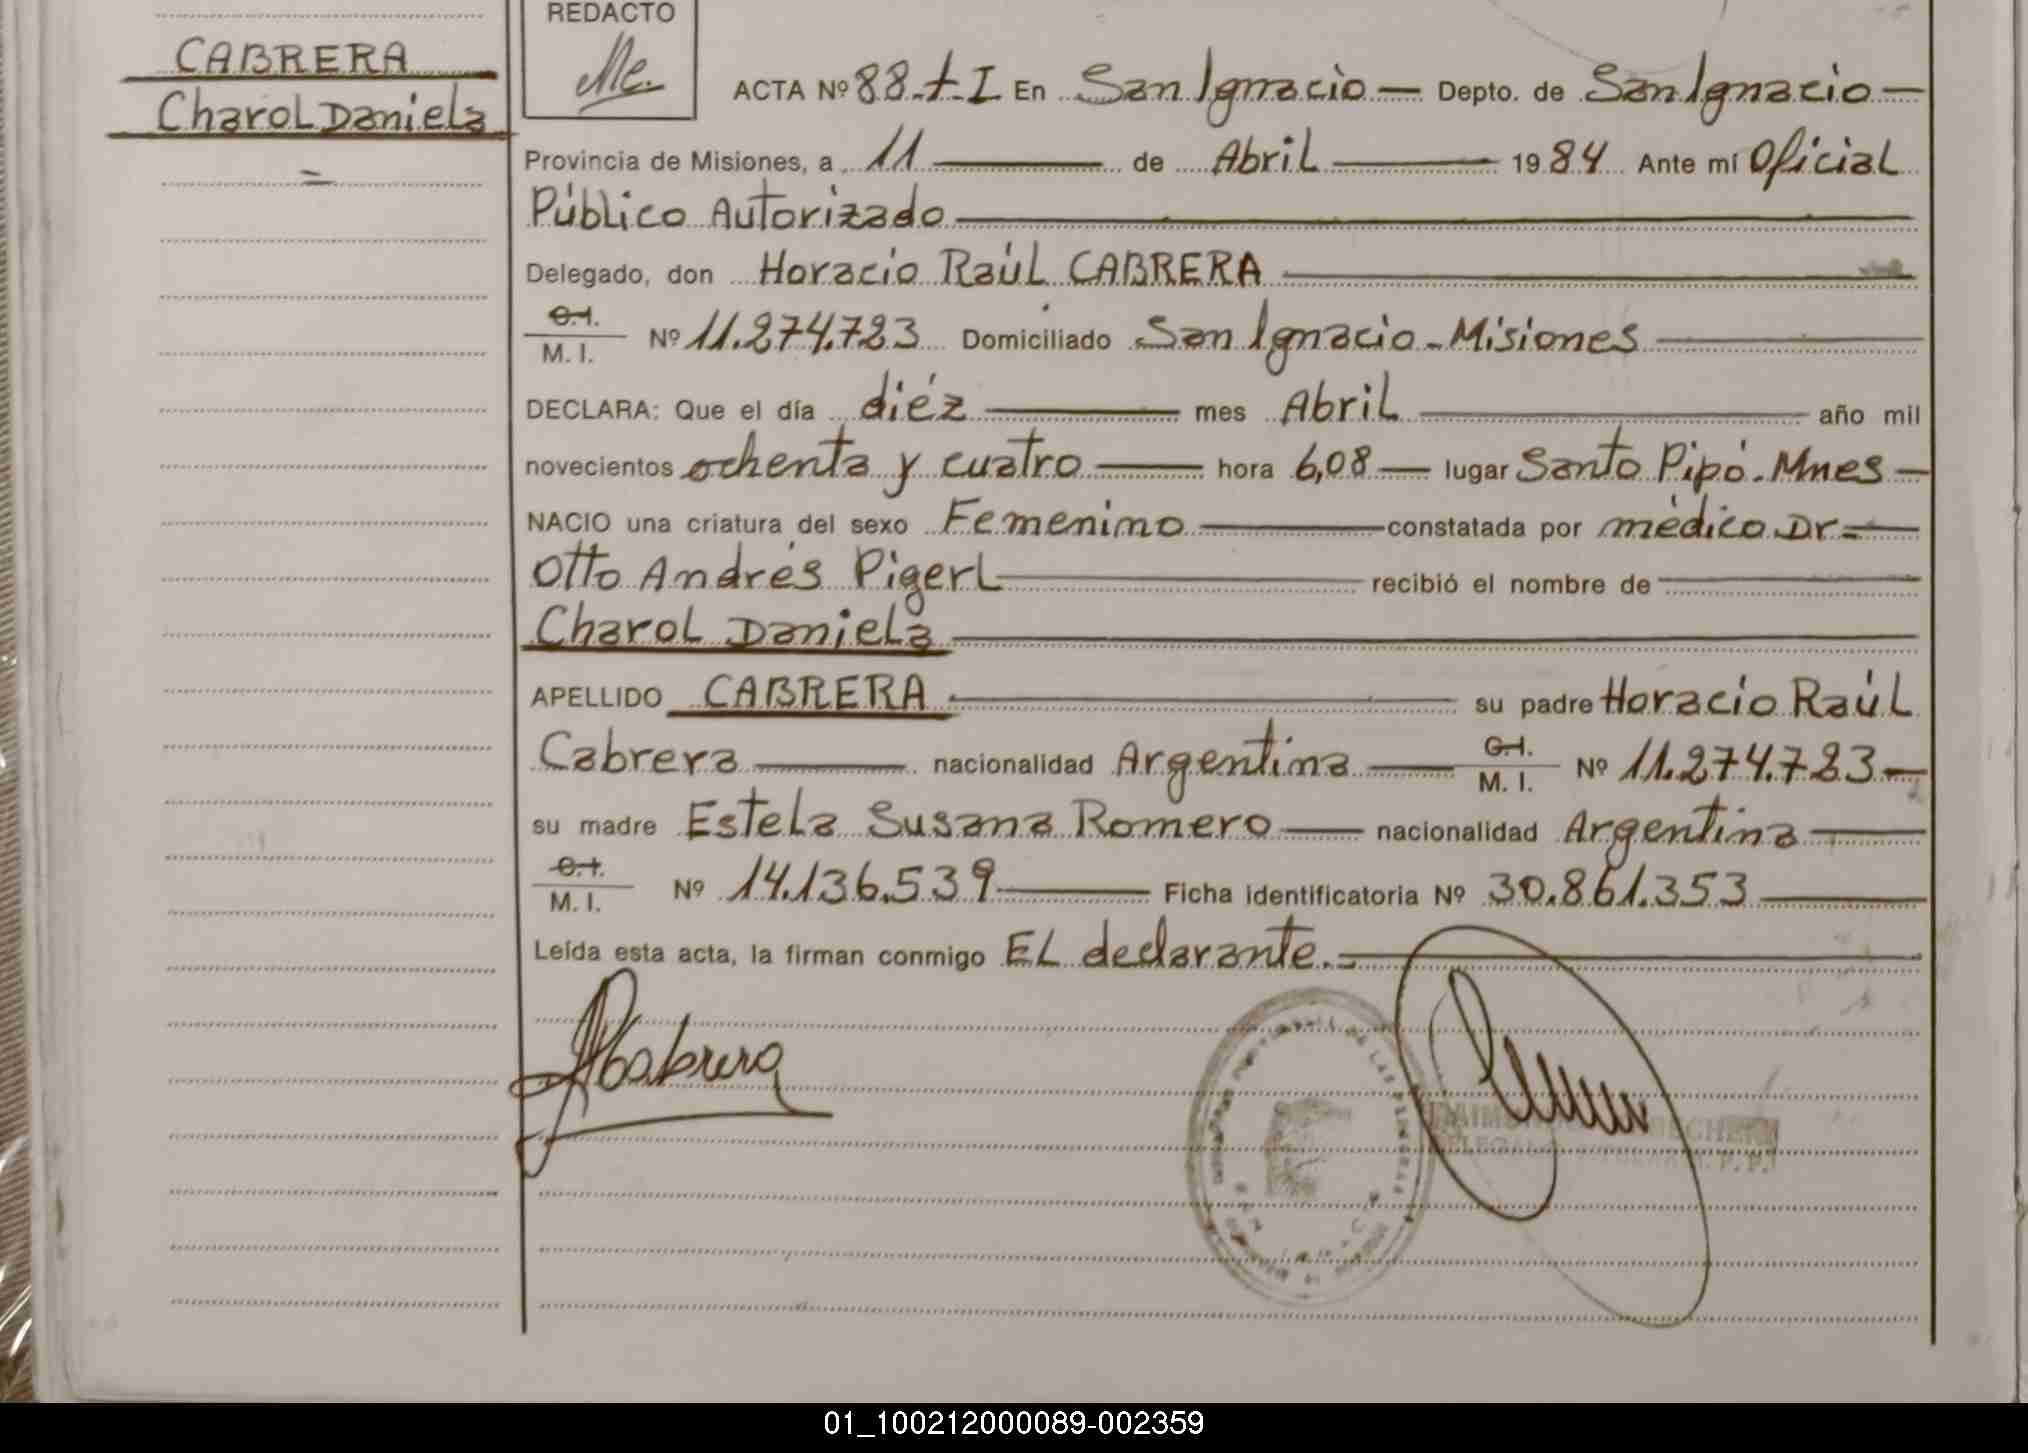 CABRERA
Charol Daniela
=
REDACTO
ACTA Nº 88.-t-I En San Ignacio — Depto. de San Ignacio —
Provincia de Misiones, a 11 — de Abril — 1984 Ante mí Oficial
Público Autorizado —
Delegado, don Horacio Raúl CABRERA —
C.I.
M. I. Nº 11.274.723 Domiciliado San Ignacio - Misiones —
DECLARA: Que el día diéz — mes Abril — año mil
novecientos ochenta y cuatro — hora 6,08 — lugar Santo Pipó. Mnes —
NACIO una criatura del sexo Femenino — constatada por médico Dr =
Otto Andrés Pigerl — recibió el nombre de —
Charol Daniela —
APELLIDO CABRERA — su padre Horacio Raúl
Cabrera — nacionalidad Argentina — C.I.
M. I. Nº 11.274.723 —
su madre Estela Susana Romero — nacionalidad Argentina —
C.I.
M. I. Nº 14.136.539 — Ficha identificatoria Nº 30.861.353 —
Leída esta acta, la firman conmigo El declarante. =
Cabrera
01_100212000089-002359